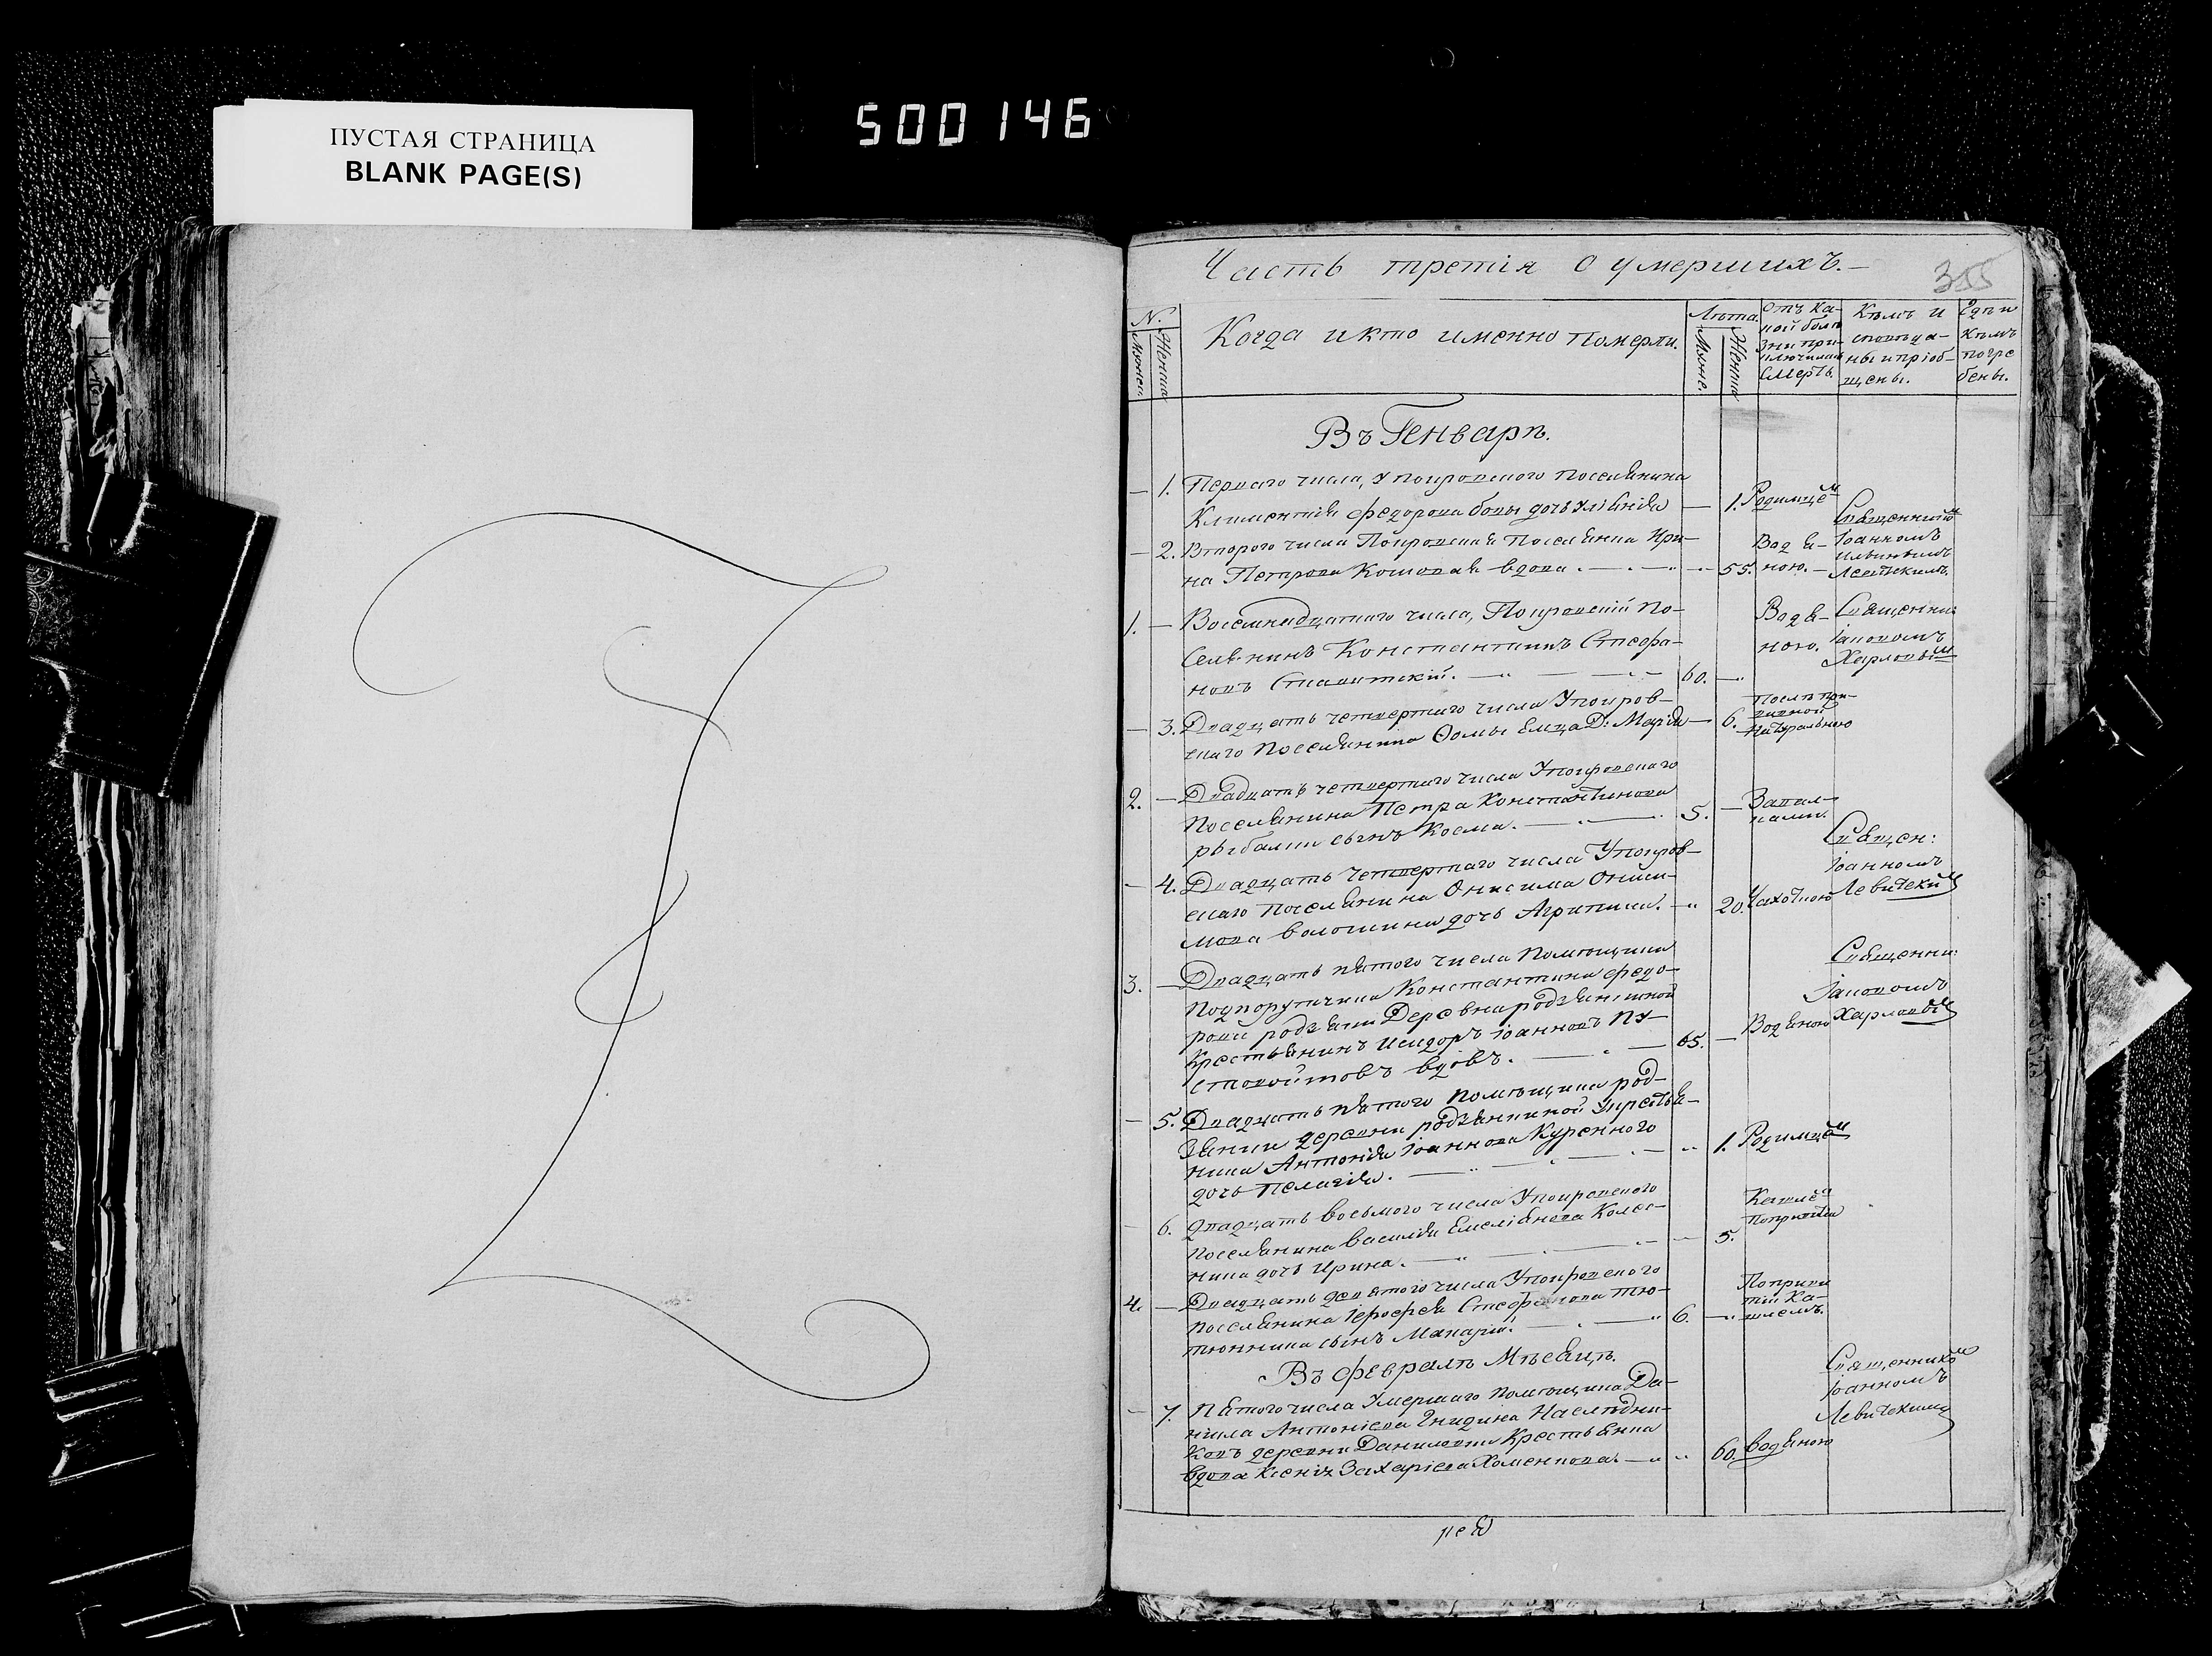 ПУСТАЯ СТРАНИЦА
BLANK PAGE(S)
500146
Часть третія о умершихъ.
355
N.
Мужес.
Женска
Когда и кто именно померли.
Лѣта.
Мужс.
Женска
Отъ ка-
кой болѣ
зни при-
ключилась
смерть.
Кѣмъ и
исповѣда-
ны и пріоб-
щены.
Гдѣ и
кѣмъ
погре
бены.
Въ Генварѣ.
— 1. Перваго числа, Упокровского поселянина
Климентія Федорова бобы дочь Уліянія — 1. Родимцемъ
— 2. Второго числа Покровская поселянка Ири-
на Петрова Кошовая вдова. 55. Водя-
ною.
Священникомъ
Іоанномъ
Левитскимъ.
1. — Восемнадцатаго числа, Покровскій по-
селянинъ Константинъ Стефа-
новъ Ставитскій. 60. — Водя-
ною.
Священни:
Іаковомъ
Харловымъ
— 3. Двадцать четвертаго числа Упокров-
скаго поселянина Фомы Емца Д: Марія — 6. Послѣ при-
вивной
Натуральною
2. — Двадцать четвертаго числа Упокровскаго
поселянина Петра Константинова
рыбалки сынъ Косма. 5. —
— 4. Двадцать четвертаго числа Упокров-
скаго поселянина Онисима Ониси-
мова волошина дочь Агрипина. 20. Чахоткою
Священ:
Іоанномъ
Левитскимъ
3. — Двадцать пятого числа помѣщика
Подпорутчика Константина Федо-
рова родзянки Деревна родзянкиной
Крестьянинъ Исидоръ Іоанновъ Пу-
стовойтовъ вдовъ. 65. — Водяною
Священни:
Іаковомъ
Харловымъ
— 5. Двадцать пятого помѣщика род-
зянки деревни родзянкиной Укрестья-
нина Антонія Іоаннова Куренного
дочь Пелагія. 1. Родимцемъ
— 6. Двадцать восьмого числа Упокровского
поселянина Василія Емеліянова Колес-
ника дочь Ирина. 5. Кашлемъ
4. — Двадцать девятого числа Упокровского
поселянина Іерофея Стефанова тю-
тюнника сынъ Макарій. 6. —
Ка-
шлемъ.
Въ Февралѣ Мѣсяцѣ.
— 7. Пятого числа Умершаго помѣщика Да-
ниила Антоніева Гнидина Наслѣдни-
ковъ деревни Даниловки Крестьянка
вдова Ксенія Захаріева Хоменкова. 60. Водяною
Священникомъ
Іоанномъ
Левитскимъ